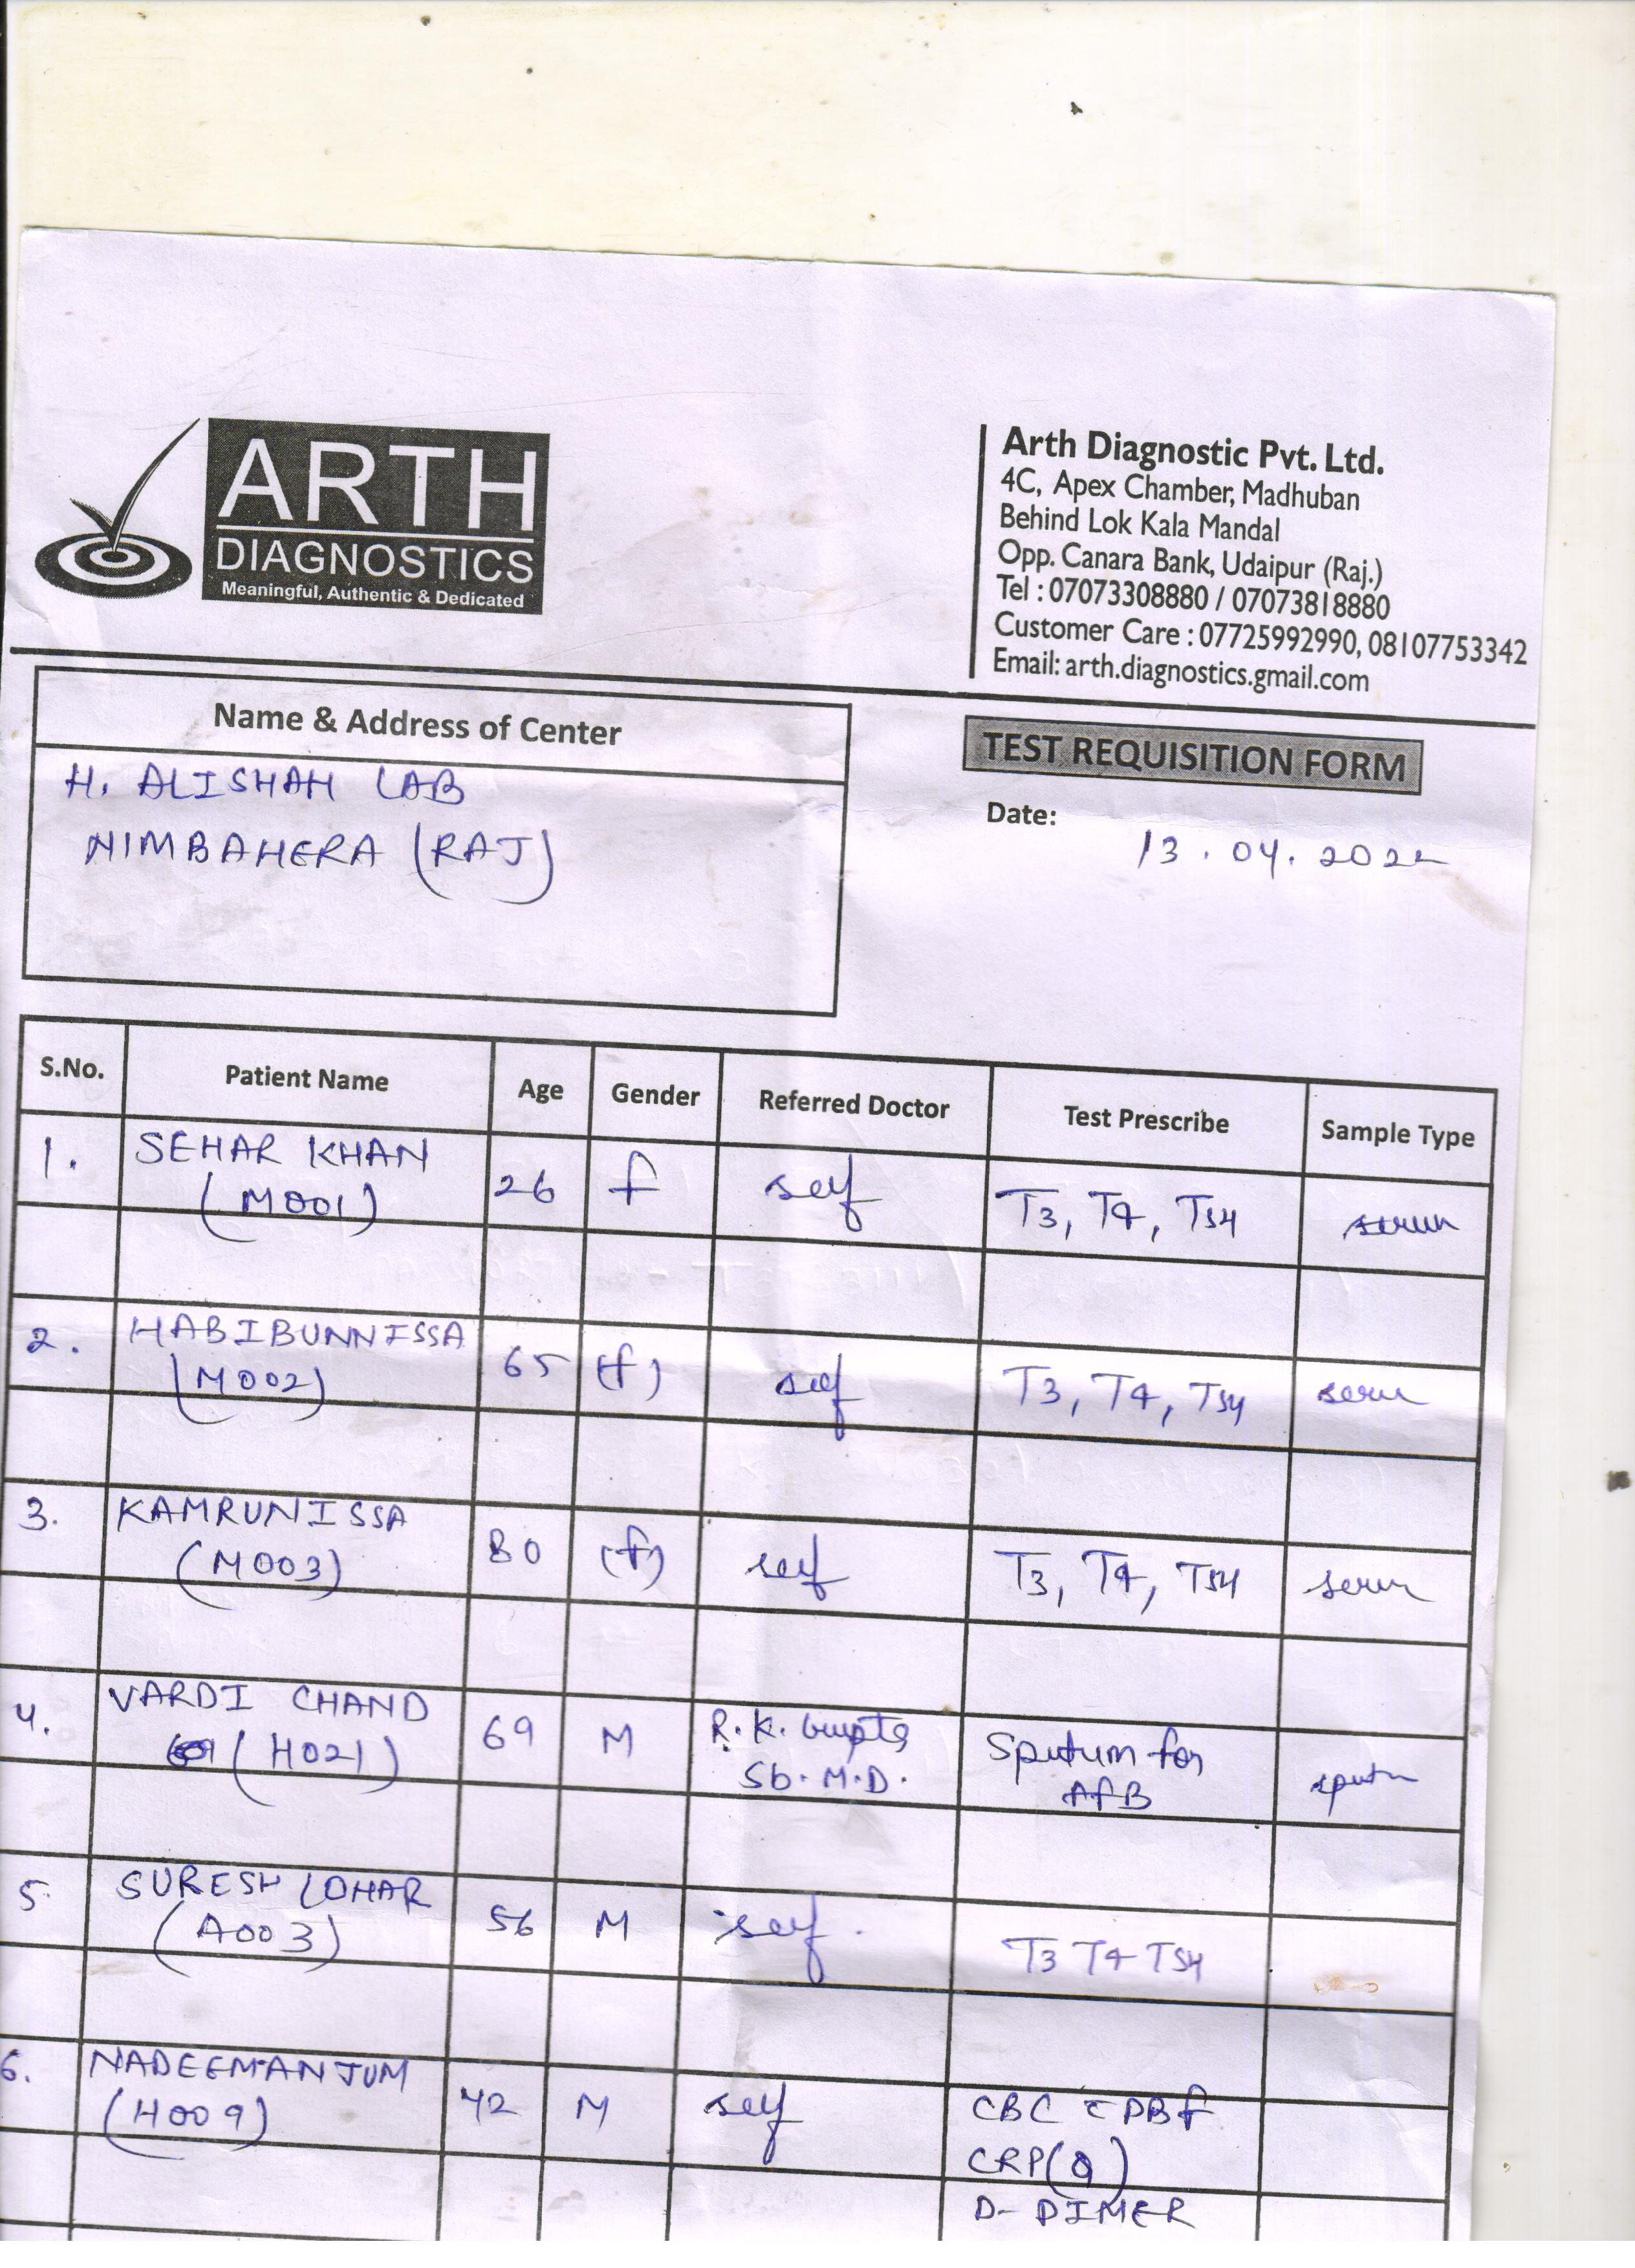 ARTH
DIAGNOSTICS
Meaningful, Authentic & Dedicated
Arth Diagnostic Pvt. Ltd.
4C, Apex Chamber, Madhuban
Behind Lok Kala Mandal
Opp. Canara Bank, Udaipur (Raj.)
Tel : 07073308880 / 07073818880
Customer Care : 07725992990, 08107753342
Email: arth.diagnostics.gmail.com
Name & Address of Center
H. ALISHAH LAB
NIMBAHERA (RAJ)
TEST REQUISITION FORM
Date: 13.04.2022
S.No. Patient Name Age Gender Referred Doctor Test Prescribe Sample Type
1. SEHAR KHAN 26 f self T3, T4, TSH serum
(M001)
2. HABIBUNNISSA 65 (f) self T3, T4, TSH serum
(M002)
3. KAMRUNISSA 80 (f) self T3, T4, TSH serum
(M003)
4. VARDI CHAND 69 M R.K. Gupta Sputum for sputum
(H021) Sb. M.D. AFB
5. SURESH LOHAR 56 M self T3 T4 TSH
(A003)
6. NADEEMANJUM 42 M self CBC c PBF
(H009) CRP(Q)
D-DIMER